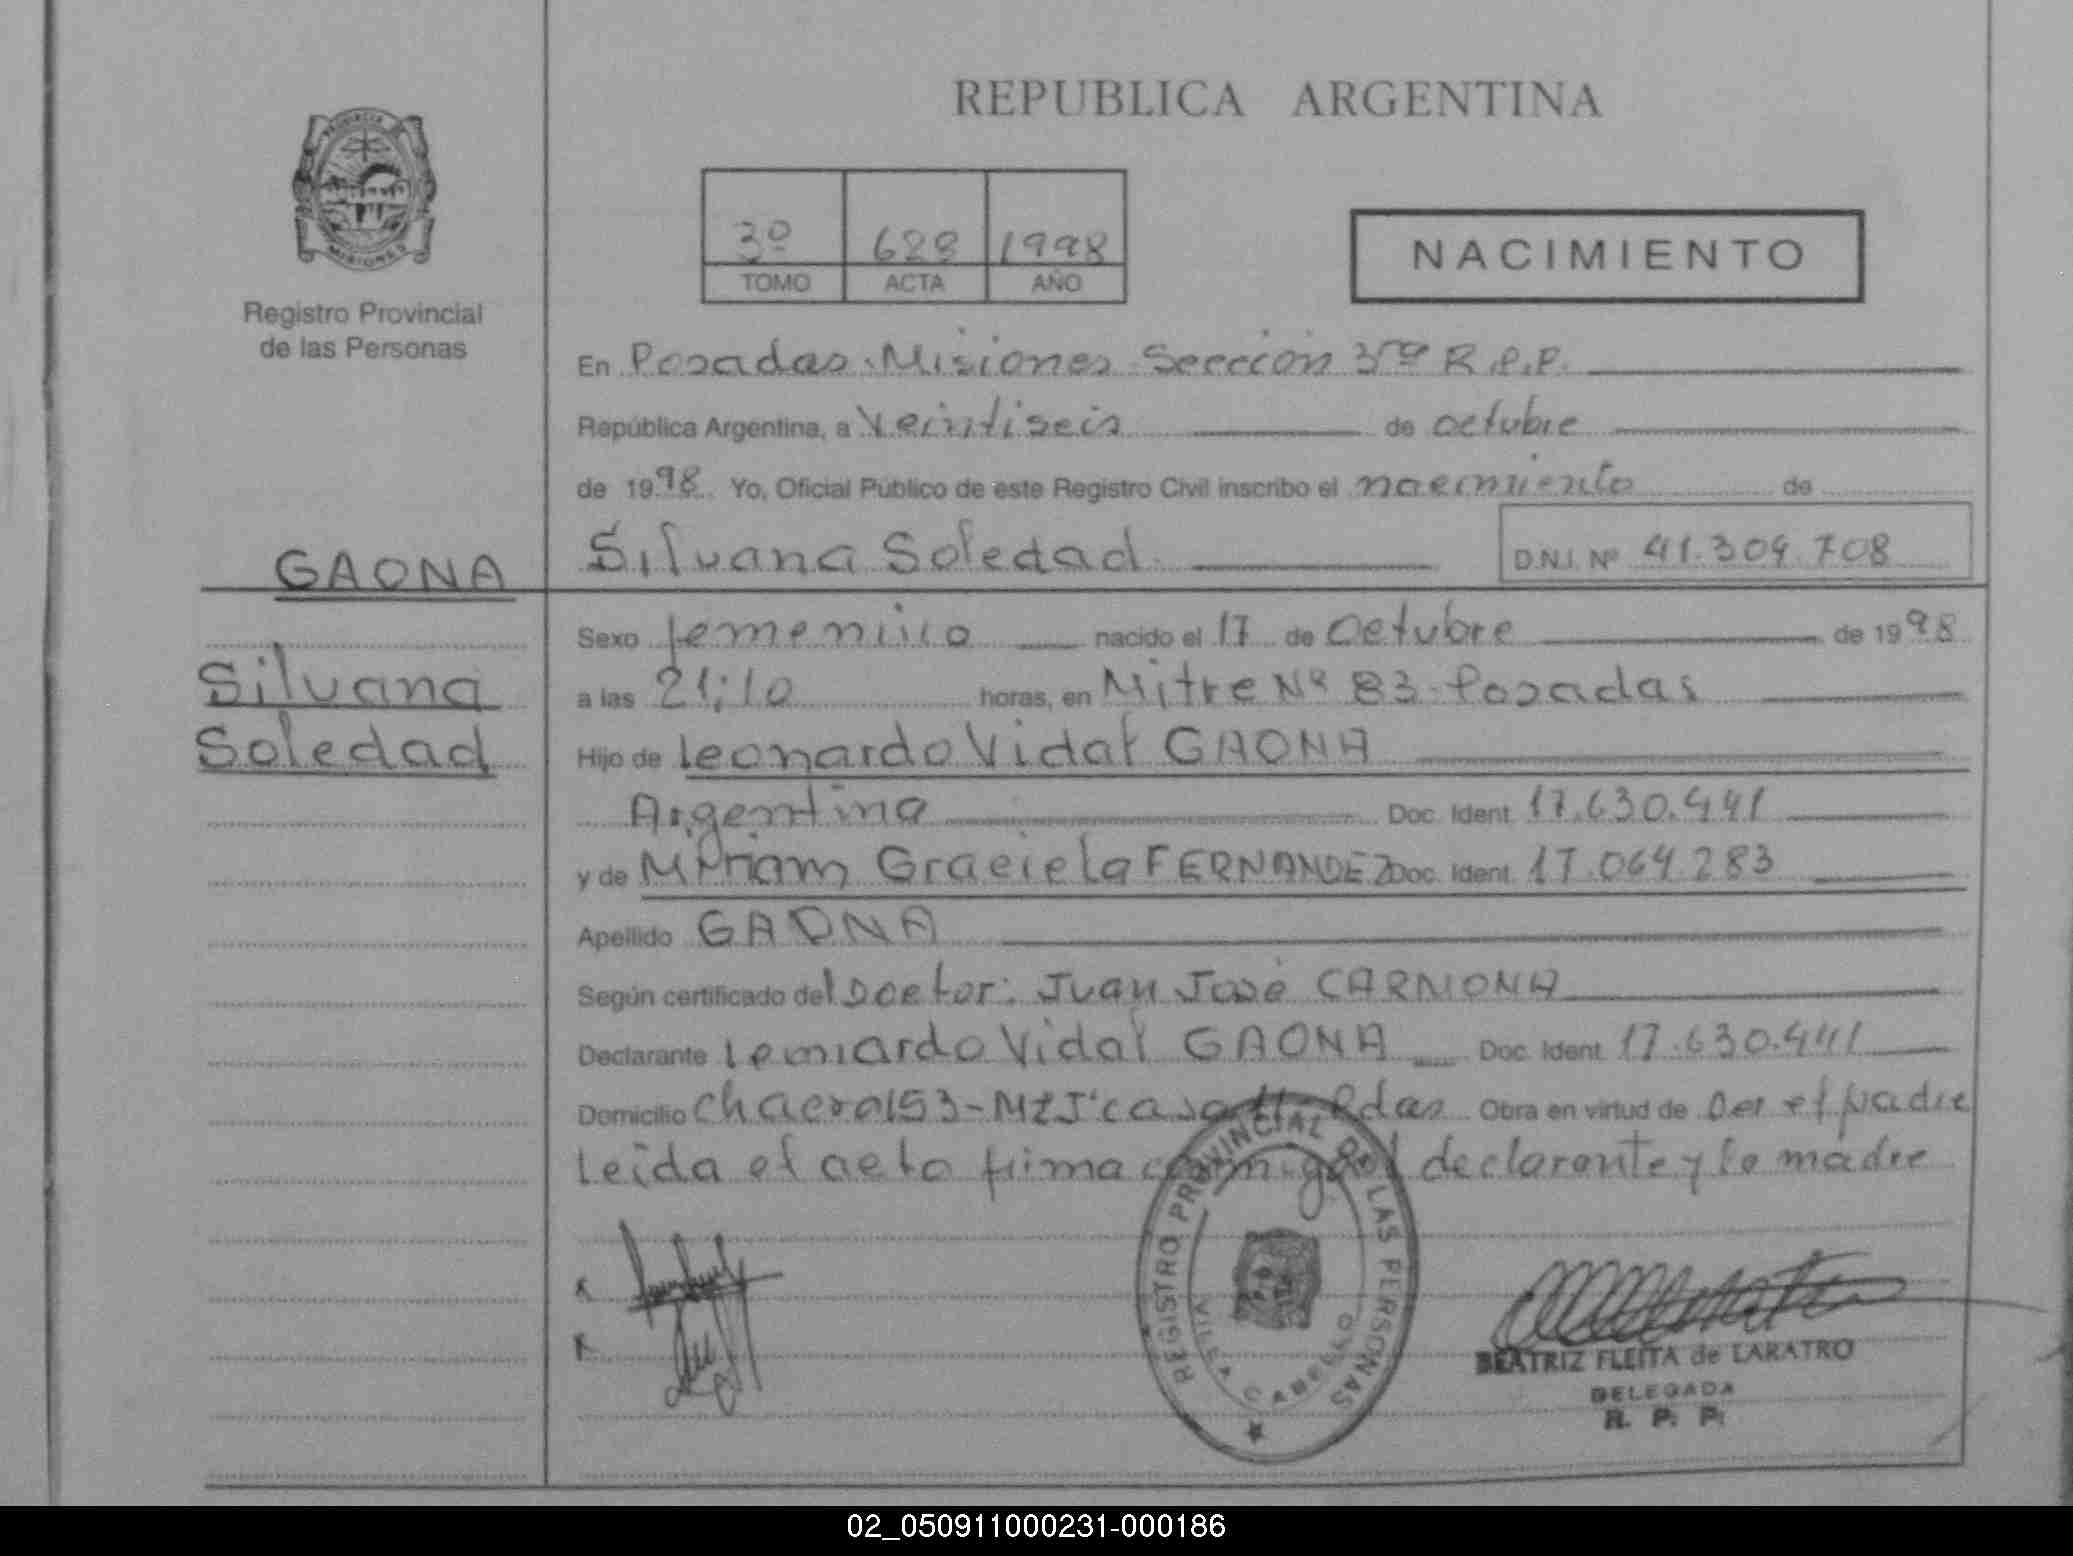 REPUBLICA ARGENTINA
PROVINCIA
MISIONES
Registro Provincial
de las Personas
3º 628 1998
TOMO ACTA AÑO
NACIMIENTO
En Posadas. Misiones. Sección 3ra R.P.P.
República Argentina, a Veintiseis de octubre
de 1998. Yo, Oficial Público de este Registro Civil inscribo el nacimiento de
GAONA
Silvana Soledad
D.N.I. Nº 41.304.708
Sexo femenino nacido el 17 de Octubre de 1998
Silvana
a las 21;10 horas, en Mitre Nº 83. Posadas
Soledad
Hijo de Leonardo Vidal GAONA
Argentina Doc. Ident. 17.630.441
y de Miriam Graciela FERNANDEZ Doc. Ident. 17.064.283
Apellido GAONA
Según certificado del Doctor: Juan José CARMONA
Declarante Leonardo Vidal GAONA Doc. Ident. 17.630.441
Domicilio Chacra 153-Mz J' casa Pdas Obra en virtud de ser el padre
Leída el acta firma conmigo el declarante y la madre
REGISTRO PROVINCIAL DE LAS PERSONAS
VILLA CABELLO
BEATRIZ FLEITA de LARATRO
DELEGADA
R. P. P.
02_050911000231-000186